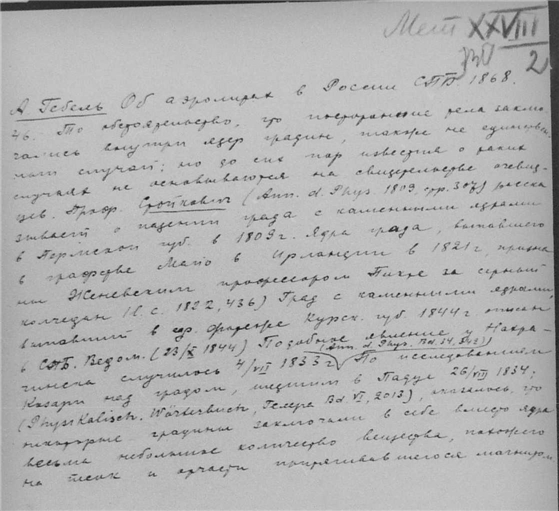 Мет XXVIII
2
А Гебель Об аэролитах в России СПБ 1868.
46. То обстоятельство, что посторонние тела заклю
чались внутри ядер градин, также не единствен
ный случай; но до сих пор известия о таких
случаях не основываются на свидетельстве очевид
цев. Проф. Стойкович (Ann. d. Phys. 1809, стр. 307) расска
зывает о падении града с каменными ядрами
в Пермской губ. в 1809 г. Ядра града, выпавшего
в графстве Майо в Ирландии в 1821 г, призна
ны Женевским профессором Пикте за серный
колчедан (l. c. 1822, 436) Град с каменными ядрами
выпавший в Курск. губ. 1844 г. описан
в СПБ. Ведом. (23/X 1844) Подобное явление у Нахра-
(Ann. d. Phys. Bd. 34,
чинска случилось 4/VII 1833 г. По исследованиям
Козари над градом, шедшим в Падуе 26/VIII 1834;
(Physikalisch. Wörterbuch, Гелера Bd. VI, 2013), оказалось, что
некоторые градины заключали в себе вместо ядра
весьма небольшое количество вещества, похожего
на песок и отчасти притягивавшегося магнитом